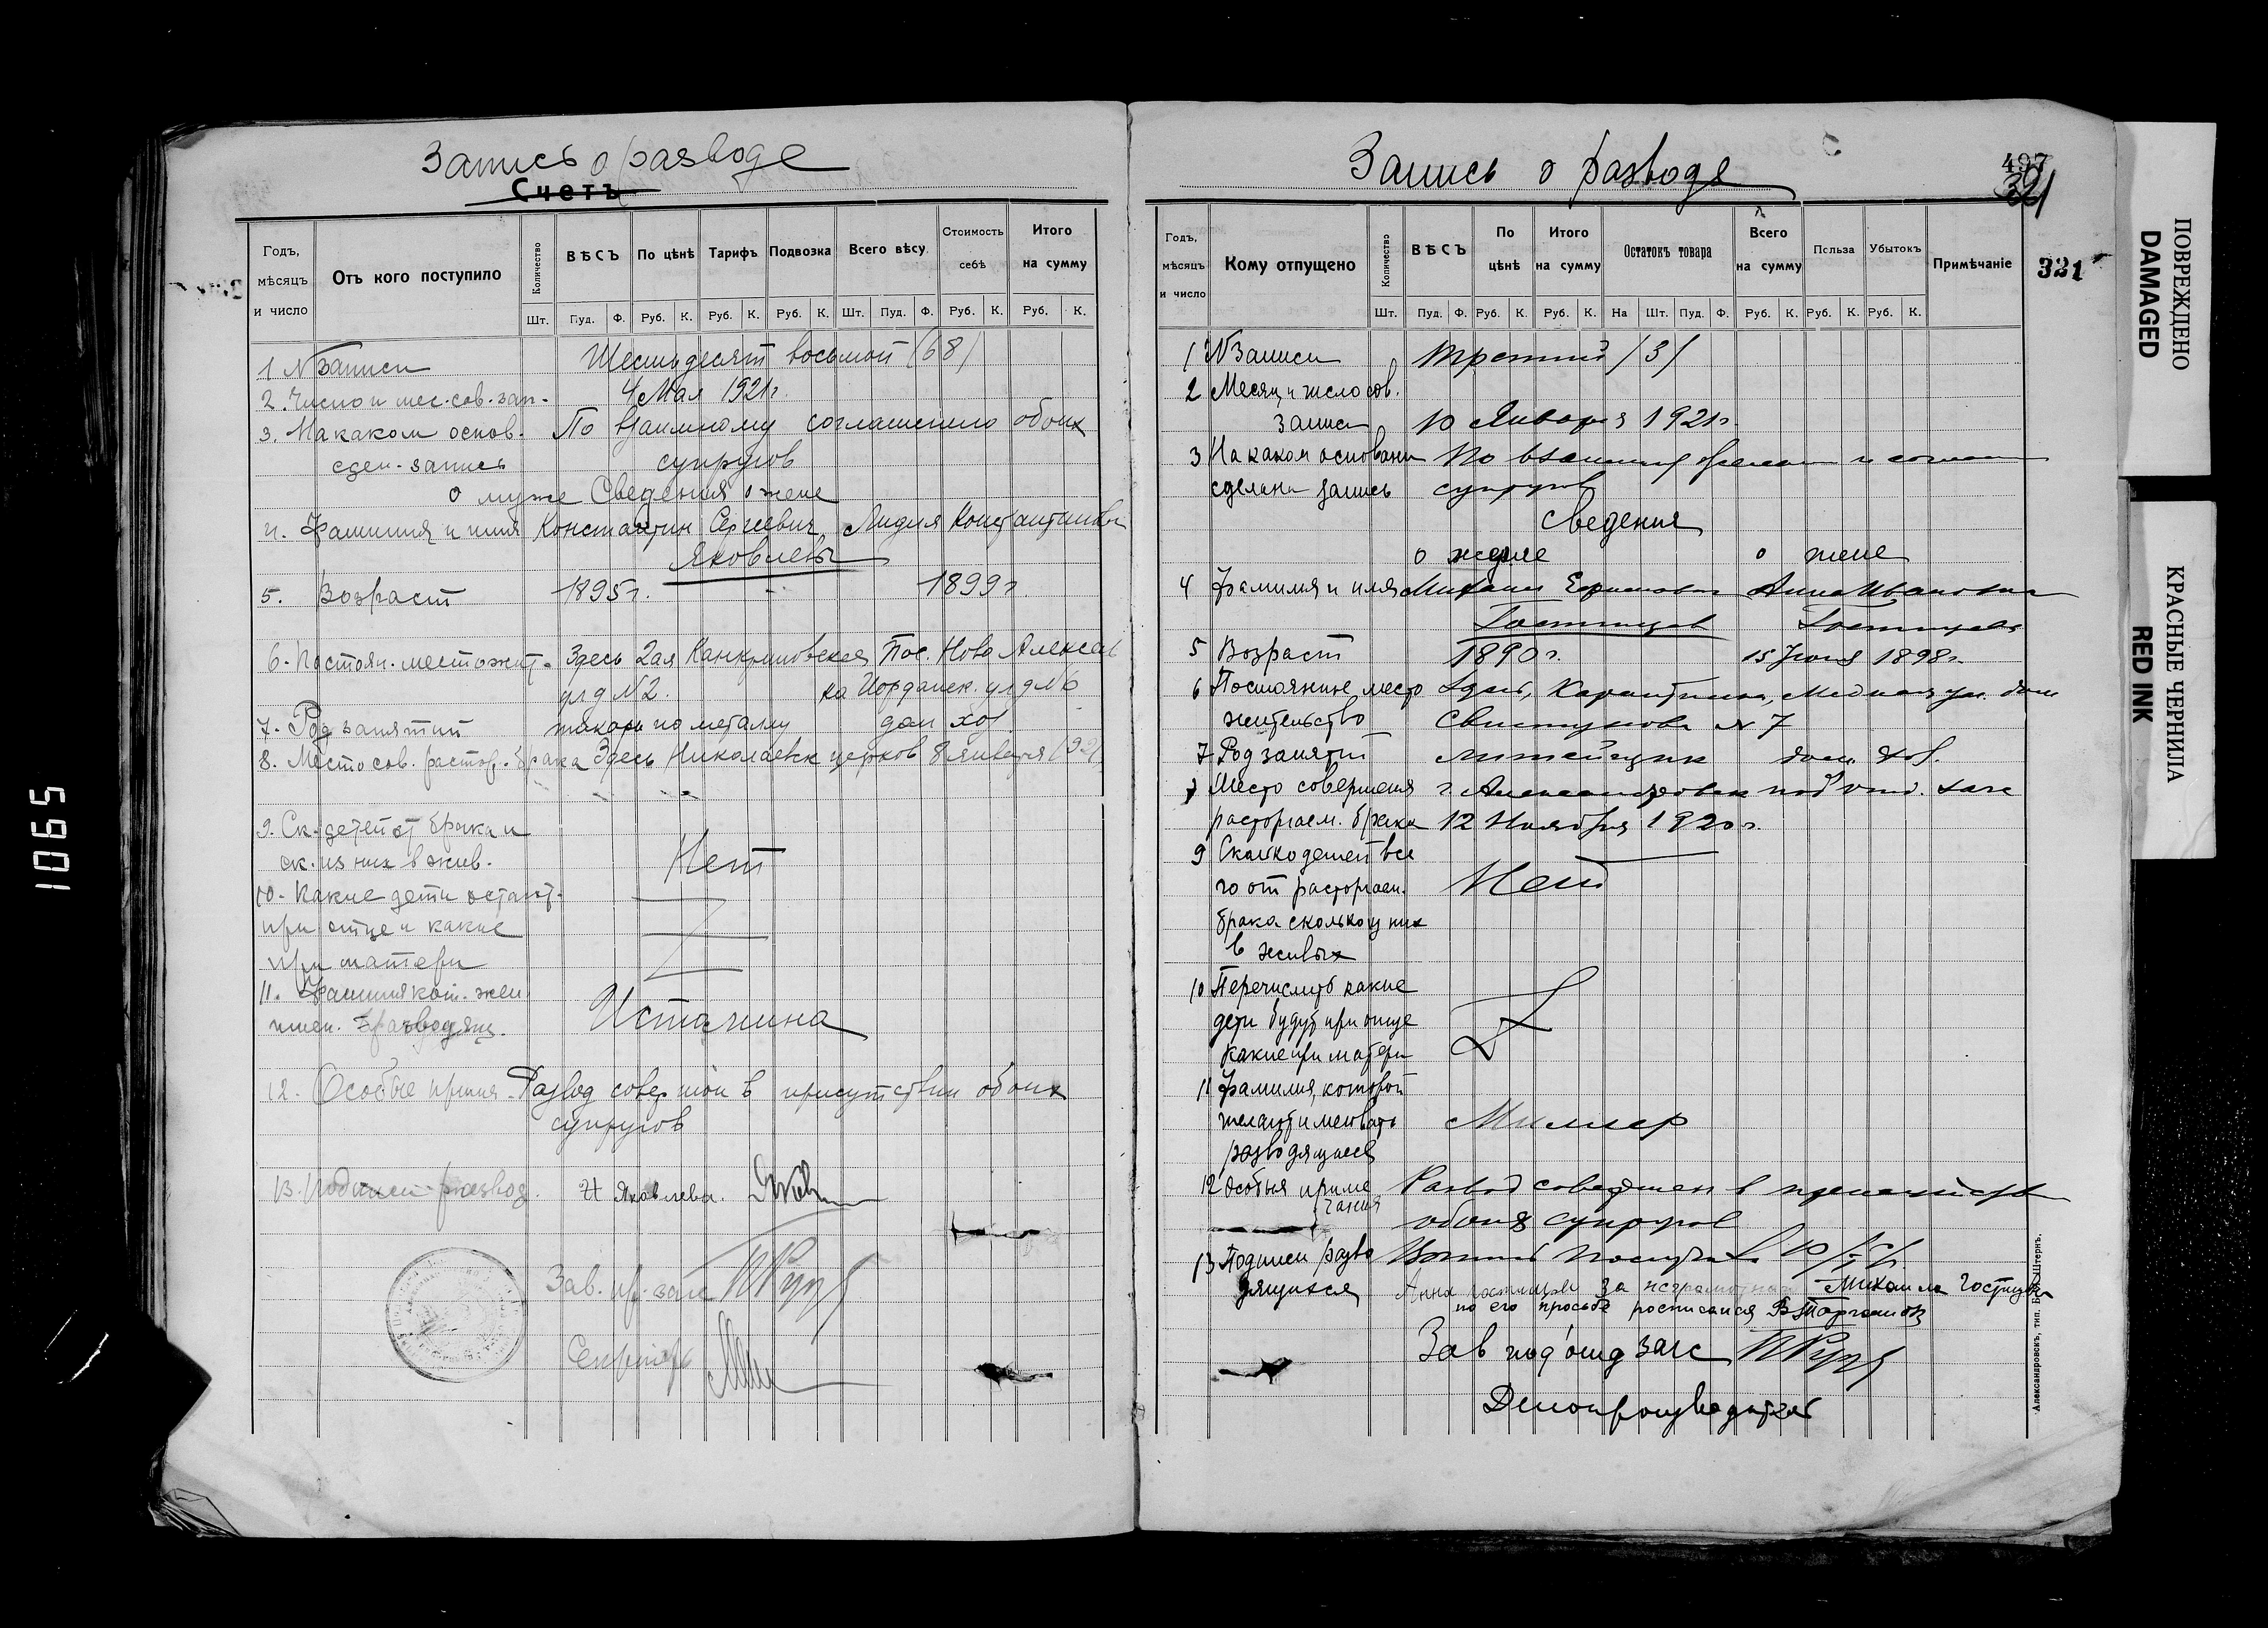 Запись о разводе
Счетъ
Годъ, мѣсяцъ и число
Отъ кого поступило
Количество
ВѢСЪ
По цѣнѣ
Тарифъ
Подвозка
Всего вѣсу
Стоимость себѣ
Итого на сумму
Шт. Пуд. Ф. Руб. К. Руб. К. Руб. К. Шт. Пуд. Ф. Руб. К. Руб. К.
1 N Записи Шестьдесят восьмой (68)
2. Число и мес. сов. зап. 4 Мая 1921г.
3. На каком основ. По взаимному соглашению обоих
сдел. запись супругов
о муже Сведения о жене
4. Фамилия и имя Константин Сергеевич Лидия Константиновн
Яковлевы
5. Возраст 1895г. 1899г
6. Постоян. местожит. Здесь 2ая Канкриновская Пос. Ново Алексан
ул д N 2. ка Иорданск. ул д N 6
7. Род занятий токарь по металлу дом. хоз
8. Место сов. растор. брака Здесь Николаевск церков 8 января
9. Ск. детей от брака и
ск. из них в жив. Нет
10. Какие дети остают.
при отце и какие
при матери
11. Фамилия кот. жел
имен. развод ящ. Истомина
12. Особые примеч. Развод совершон в присутствии обоих
супругов
13. Подписи развод. Яковлева.
Зав. пр. загс
Секретарь
Запись о разводе
497
321
321
Годъ, мѣсяцъ и число
Кому отпущено
Количество
ВѢСЪ
По цѣнѣ
Итого на сумму
Остатокъ товара
Всего на сумму
Польза
Убытокъ
Примѣчаніе
Шт. Пуд. Ф. Руб. К. Руб. К. На Шт. Пуд. Ф. Руб. К. Руб. К. Руб. К.
1 N Записи третий /3/
2 Месяц и число сов.
записи 10 Января 1921г.
3 На каком основани По взаимному
сделана запись супругов
Сведения
о муже о жене
4 Фамилия и имя Михаил Ефимович Анна Ивановна
Гостищев Гостищева
5 Возраст 1890г. 15 Июня 1898г.
6 Постоянное место Здесь, Карантинная, Медная ул. дом
жительство Свистунова N 7
7 Род занятий литейщик дом. хоз.
8 Место совершения г Александровск под отд. загс
расторгаем. брака 12 Ноября 1920г.
9 Сколько детей все
го от расторгаем. Нет
брака сколько из них
в живых
10 Перечислить какие
дети будут при отце
какие при матери
11 Фамилия, которой
желают именовать Миллер
разводящиеся
12 Особыя приме Развод совершен в присутств
чания обоих супругов
13 Подписи разво
дящихся Анна Гостищева За неграмотного Михаила Гостищева
по его просьбе росписался
Зав под отд загс
Делопроизводитель
Александровскъ, тип. Б. Штернъ.
ПОВРЕЖДЕНО
DAMAGED
КРАСНЫЕ ЧЕРНИЛА
RED INK
1065